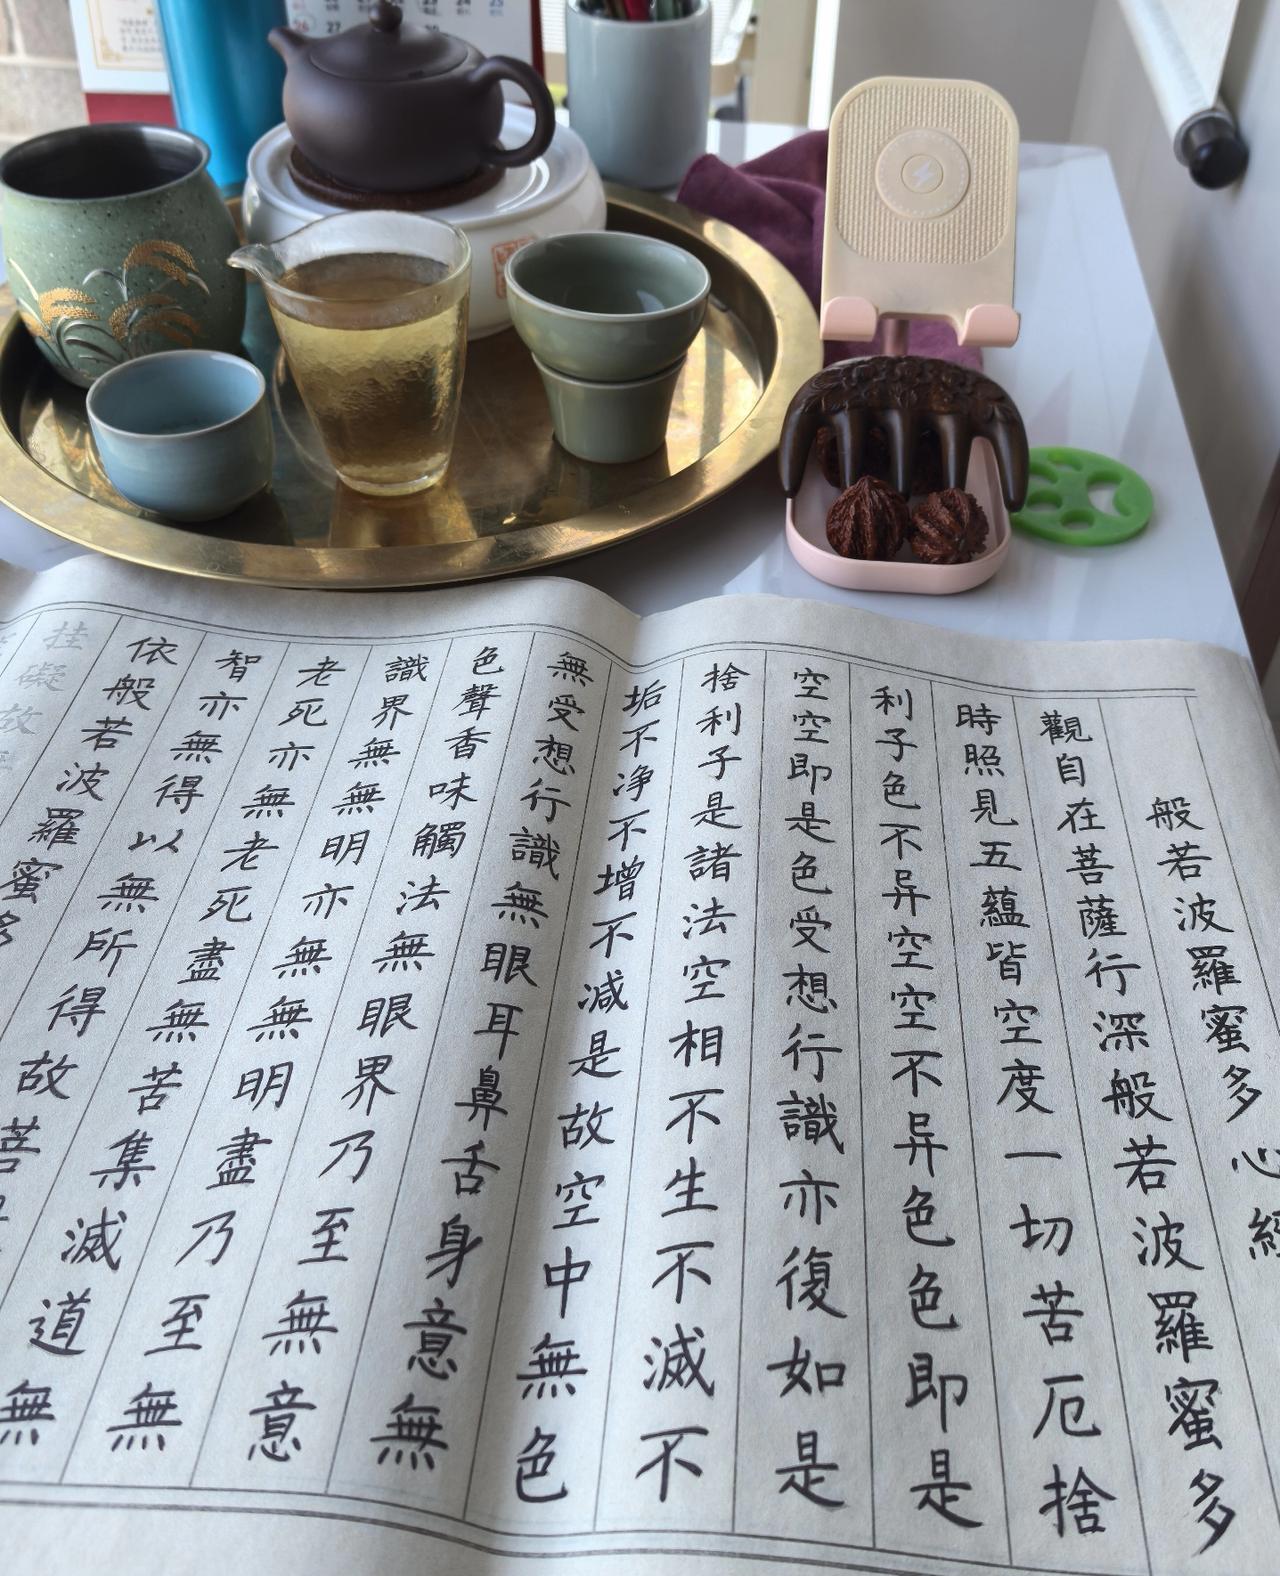 般若波羅蜜多心經
觀自在菩薩行深般若波羅蜜多
時照見五蘊皆空度一切苦厄捨
利子色不异空空不异色色即是
空空即是色受想行識亦復如是
捨利子是諸法空相不生不滅不
垢不净不增不減是故空中無色
無受想行識無眼耳鼻舌身意無
色聲香味觸法無眼界乃至無意
識界無無明亦無無明盡乃至無
老死亦無老死盡無苦集滅道無
智亦無得以無所得故菩
依般若波羅蜜多
挂礙故